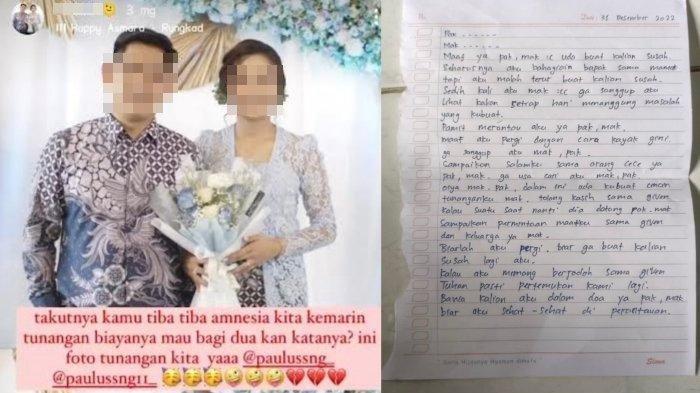 3 mg
Happy Asmara · Rungkad
takutnya kamu tiba tiba amnesia kita kemarin
tunangan biayanya mau bagi dua kan katanya? ini
foto tunangan kita yaaa @paulussng_
@paulussng11_
No.
Date: 31 Desember 2022
Pak ......
Mak ......
Maaf ya pak, mak udo buat kalian susah.
Seharusnya aku bahagiain bapak sama mamak
tapi aku malah terus buat kalian susah.
Sedih kali aku mak ga sanggup aku
lihat kalian setiap hari menanggung masalah
yang kubuat.
Pamit merantau aku ya pak, mak.
maaf aku pergi dengan cara kayak gini.
ga sanggup aku mak, pak.
Sampaikan salamku sama orang cece ya
pak, mak. ga usa cari aku mak, pak.
oiya mak, pak, dalam ini ada kubuat cincin
tunanganku mak. tolong kasih sama given
kalau suatu saat nanti dia datang pak, mak
Sampaikan permintaan maafku sama given
dan keluarga ya mak.
Biarlah aku pergi. biar ga buat kalian
susah lagi aku.
kalau aku memang berjodoh sama given
Tuhan pasti pertemukan kami lagi.
Bawa kalian aku dalam doa ya pak, mak
biar aku sehat-sehat di perantauan.